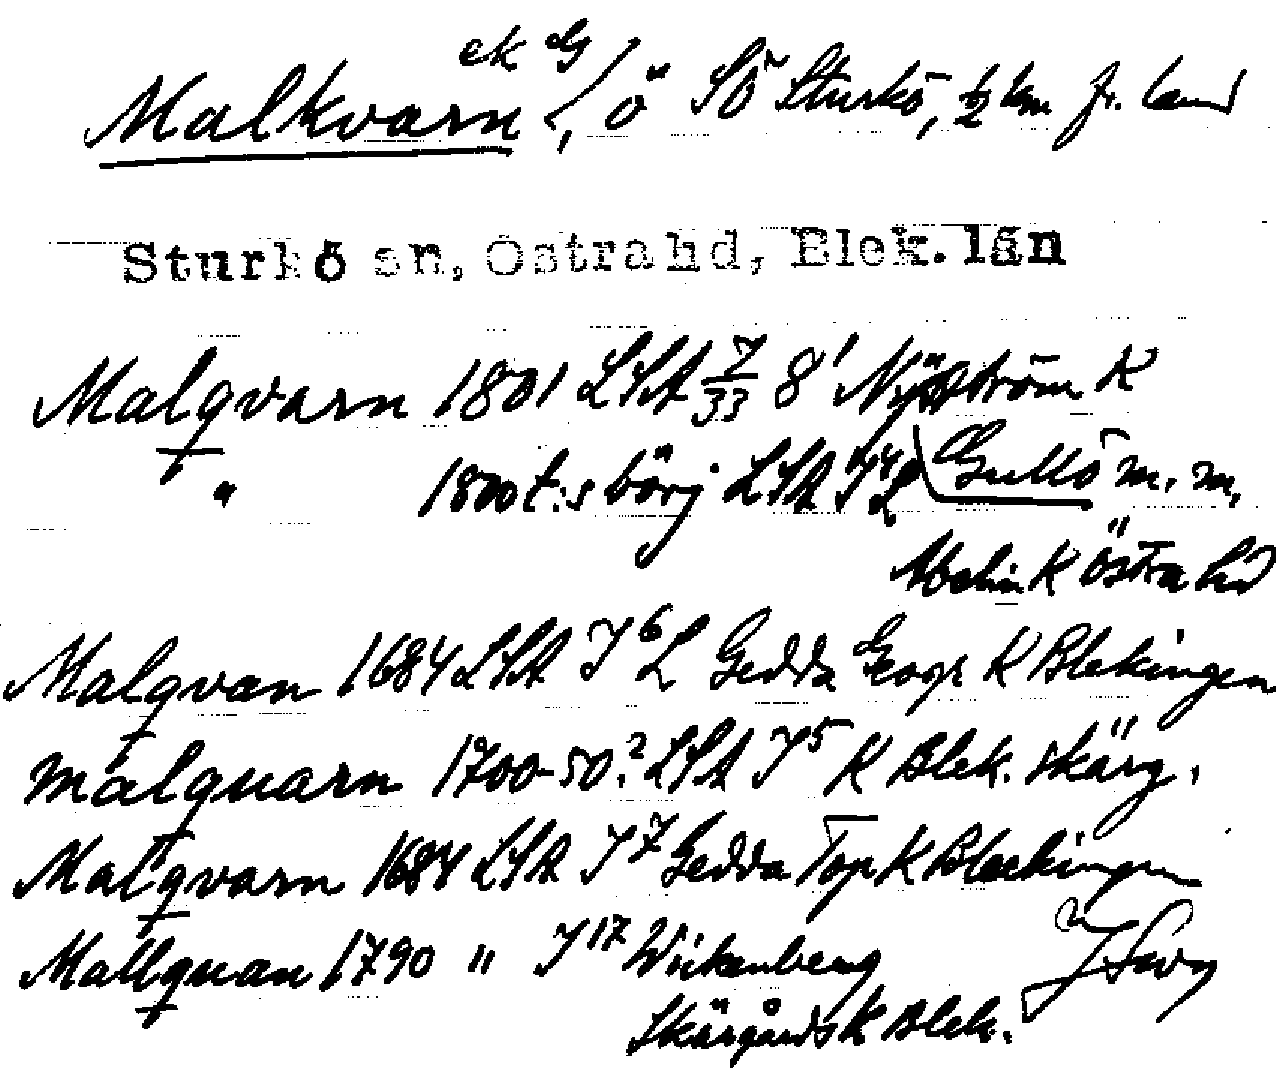 Malkvarn ek G/<, ö SÖ Sturkö, ½ km fr. land
Sturkö sn, Östra hd, Blek. län
Malqvarn 1801 LSA 7/33 8' Nyström K
" 1800 t:s börj LSA J4 L Gullö m. m.
K Östra hd
Malqvan 1684 LSA J6 L Gedda Geogr K Blekingen
Malquarn 1700-50? LSA J5 K Blek. skärg.
Malqvarn 1684 LSA J7 Gedda Top K Bleckingen
Mallquan 1790 " J17 Wirkenberg
Skärgårds K Blek.